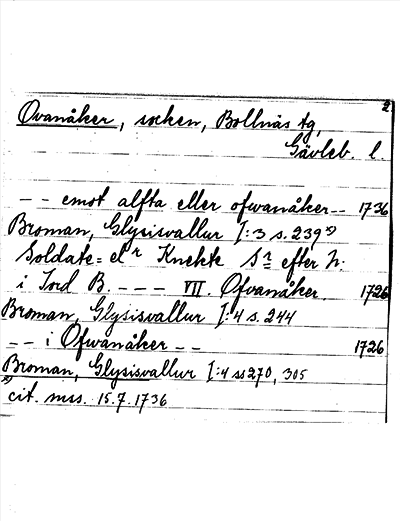 2
Ovanåker, socken, Bollnäs tg,
Gävleb. l.
-- emot alfta eller ofwanåker -- 1736
Broman, Glysisvallur I:3 s. 239 x)
Soldate= elr Knekte Sr efter N:
i Jord B. --- VII. Ofvanåker. 1726
Broman, Glysisvallur I:4 s. 244
-- i Ofwanåker -- 1726
Broman, Glysisvallur I:4 ss 270, 305
x) cit. mss. 15.7.1736